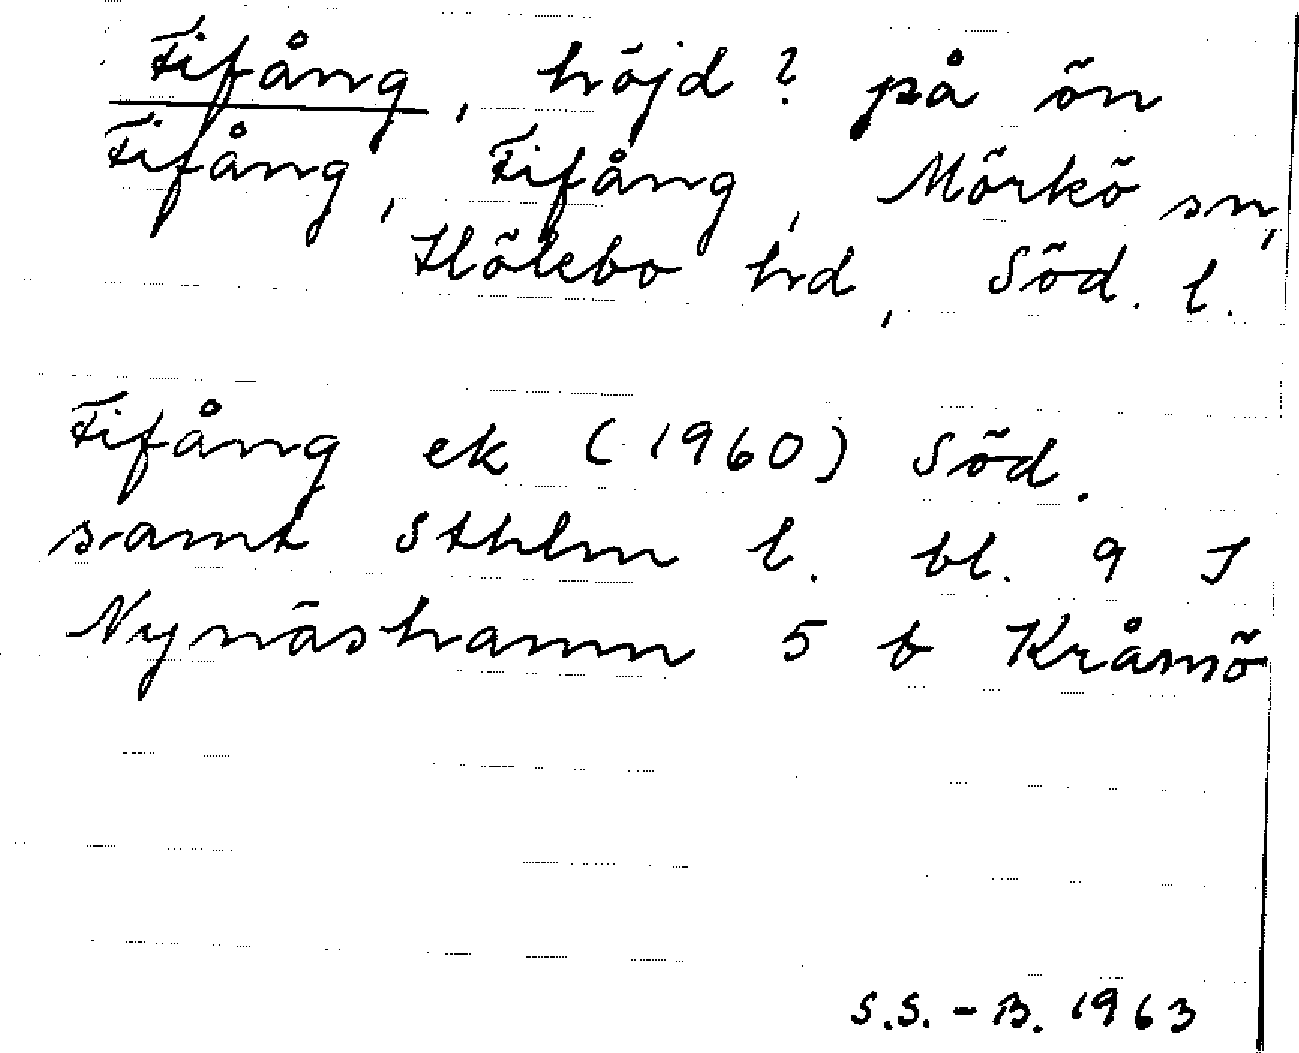 Fifång, höjd? på ön
Fifång, Fifång, Mörkö sn,
Hölebo hd, Söd. l.
Fifång ek (1960) Söd.
samt Sthlm l. bl. 9 I
Nynäshamn 5 b Kråmö
S.S.-B. 1963